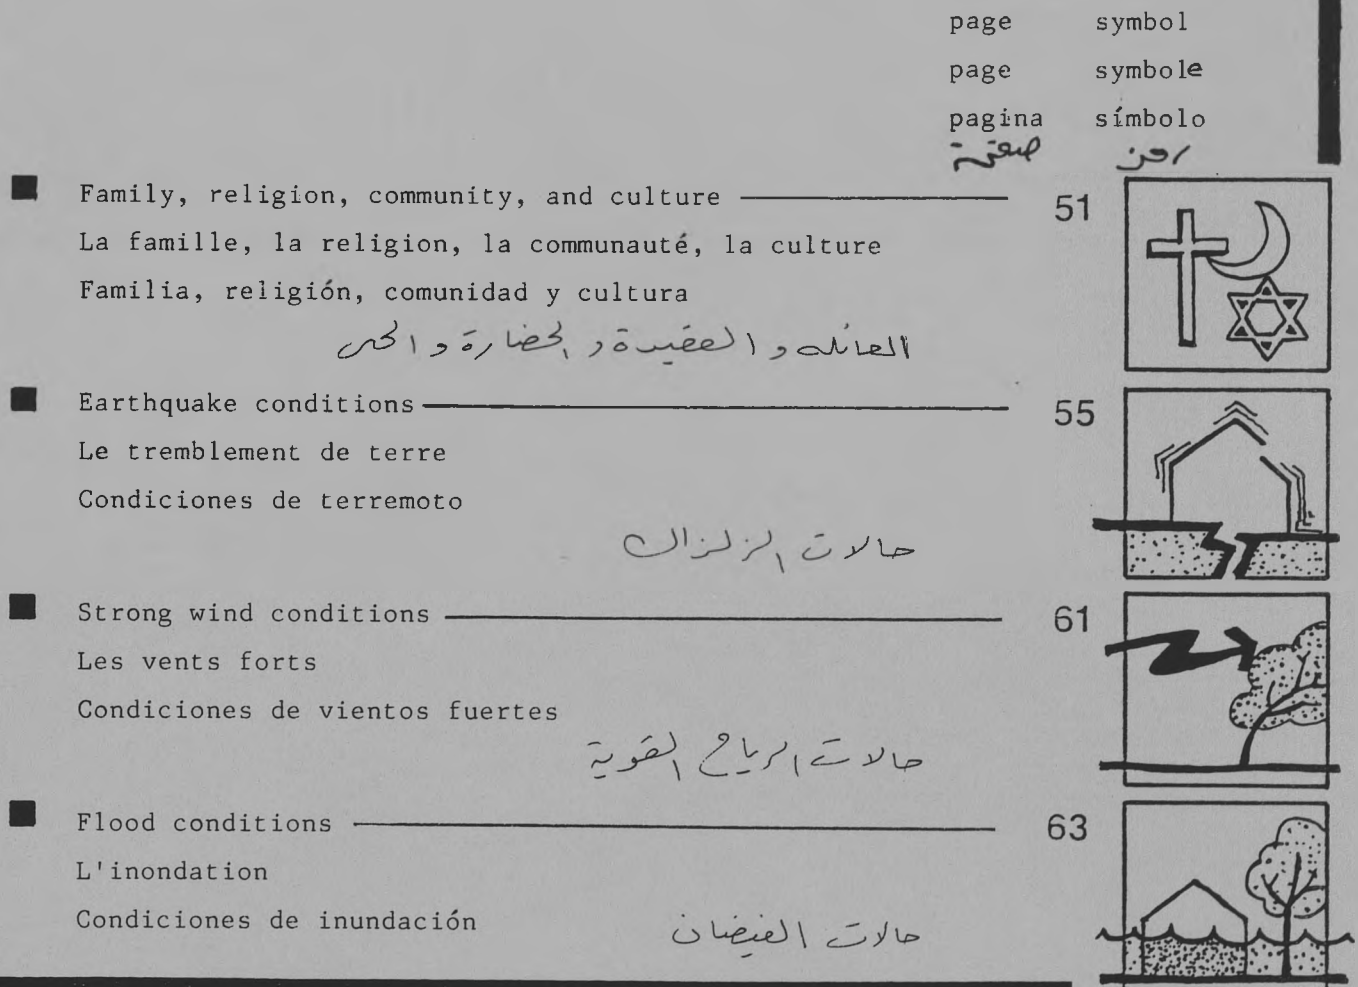 page symbol
page symbole
pagina símbolo
صفحة رمز
Family, religion, community, and culture 51
La famille, la religion, la communauté, la culture
Familia, religión, comunidad y cultura
العائله و العقيدة و الحضارة و الحى
Earthquake conditions 55
Le tremblement de terre
Condiciones de terremoto
حالات الزلزال
Strong wind conditions 61
Les vents forts
Condiciones de vientos fuertes
حالات الرياح القوية
Flood conditions 63
L'inondation
Condiciones de inundación
حالات الفيضان